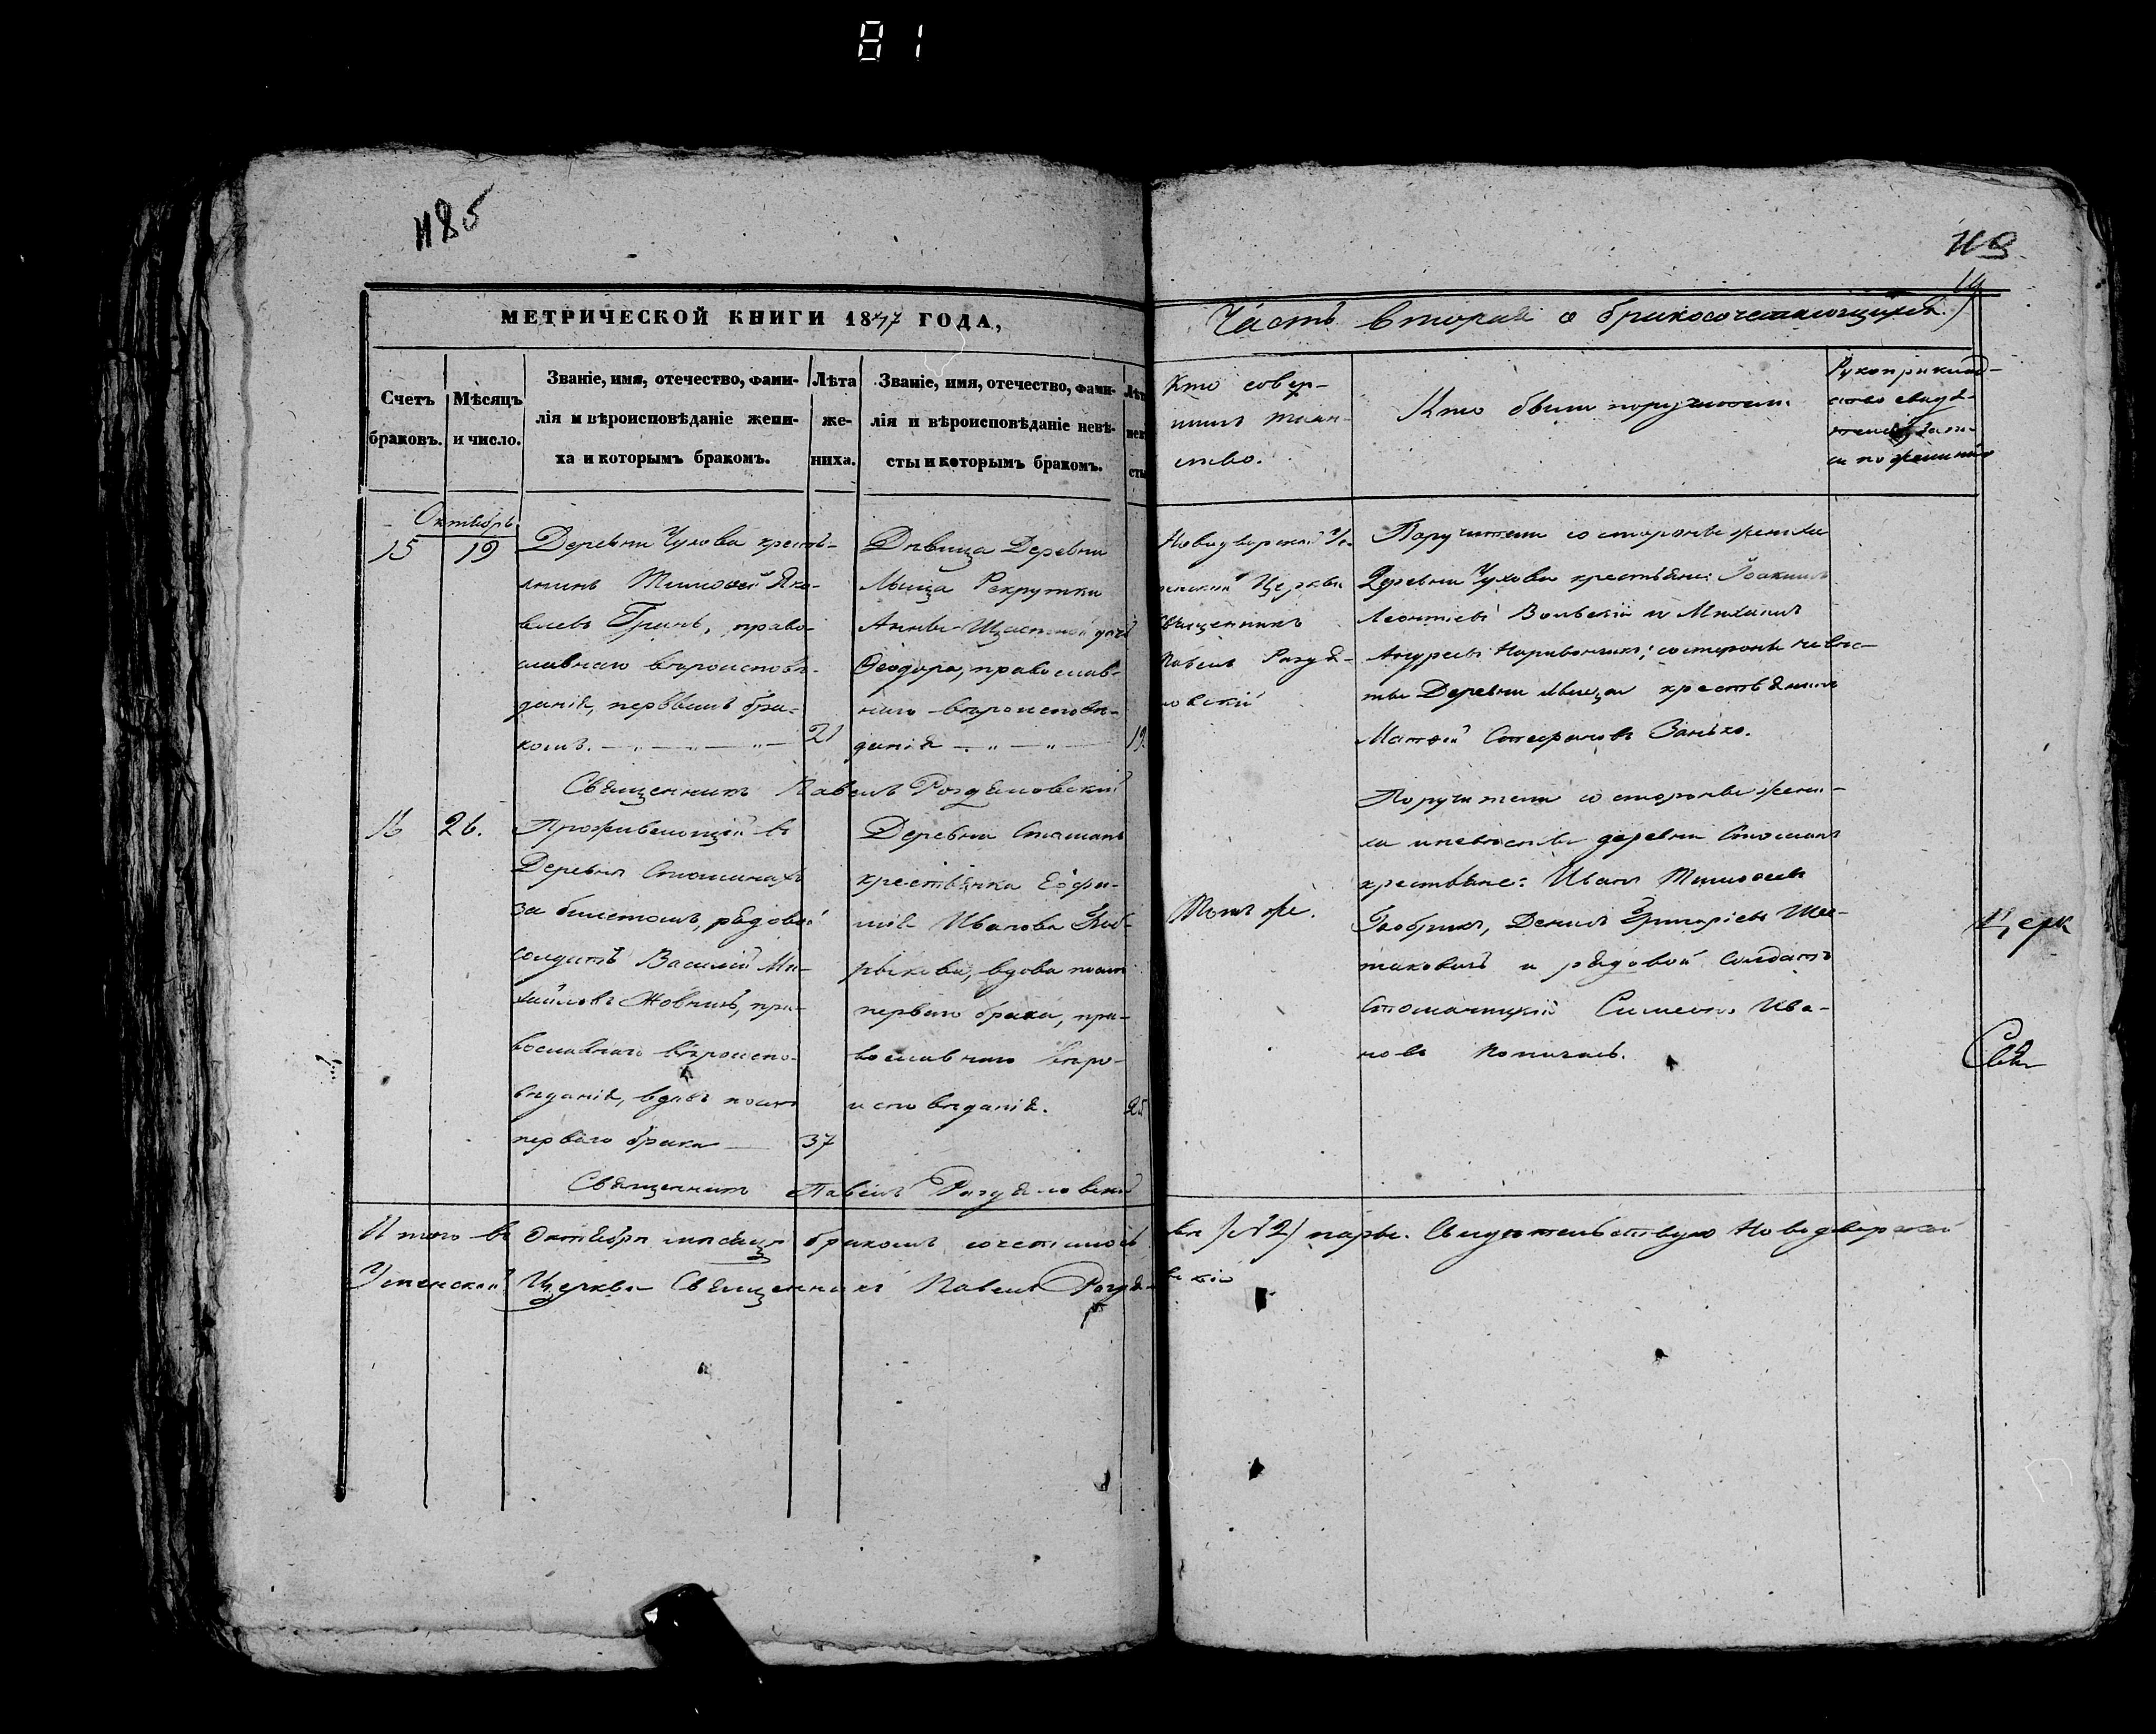 81
1185
119
МЕТРИЧЕСКОЙ КНИГИ 1847 ГОДА,
Часть вторая о бракосочетающихся.
Счетъ браковъ.
Мѣсяцъ и число.
Званіе, имя, отечество, фами-
лія и вѣроисповѣданіе жени-
ха и которымъ бракомъ.
Лѣта
же-
ниха.
Званіе, имя, отечество, фами-
лія и вѣроисповѣданіе невѣ-
сты и которымъ бракомъ.
Лѣт
нев
сты
Кто совер-
шилъ таин-
ство.
Кто были поручители.
Рукоприклад-
ство свидѣ-
телей запи-
си по желанію
Октябрь
15
19
Деревни Чухова кресть-
янинъ Тимофей Яко-
влевъ Гринь, право-
славнаго вѣроисповѣ-
данія, первымъ бра-
комъ.
21
Дѣвица Деревни
Мыща Рекрутки
Анны дочь
Ѳеодора, православ-
наго вѣроисповѣ-
данія
19.
Новодворской Ус-
пенской Церкви
Священникъ
Павелъ Разд я-
ловскій
Поручители со стороны жениха
Деревни Чухова крестьяне: Іоакимъ
Леонтіевъ и Михаилъ
Андреевъ со стороны невѣс-
ты Деревни Мыща крестьянинъ
Матѳей Стефановъ Занько.
Священникъ Павелъ Роздяловскій
16
26.
Проживающій въ
Деревнѣ Стошанахъ
за билетомъ, рядовой
солдатъ Василій Ми-
хайловъ Жовникъ, пра-
вославнаго вѣроиспо-
вѣданія, вдовъ послѣ
перваго брака
37
Деревни Стошанъ
крестьянка Еѳфи-
мія Иванова
вдова послѣ
перваго брака, пра-
вославнаго вѣро-
исповѣданія.
25
Тотъ же.
Поручители со стороны жени-
ха и невѣсты деревни Стошанъ
крестьяне: Иванъ Тимоѳеевъ
Бобрикъ, Данилъ Григоріевъ Шес-
таковичъ и рядовой солдатъ
Симеонъ Ива-
новъ
Церк
Свя
Священникъ Павелъ Роздяловскій
Итого въ Октябрѣ мѣсяцѣ бракомъ сочетались двѣ /№2/ пары. Свидѣтельствую Новодворской
Успенской Церкви Священникъ Павелъ Роздяловскій